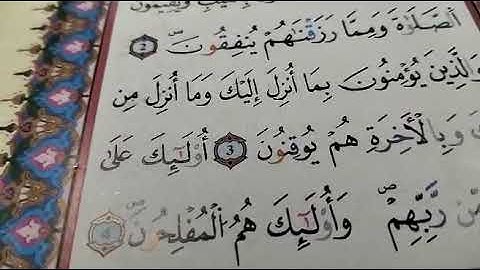 بِالْغَيْبِ وَيُقِيمُونَ
الصَّلَوٰةَ وَمِمَّا رَزَقْنَٰهُمْ يُنفِقُونَ 2
وَالَّذِينَ يُؤْمِنُونَ بِمَا أُنزِلَ إِلَيْكَ وَمَا أُنزِلَ مِن
وَبِالْأَخِرَةِ هُمْ يُوقِنُونَ 3 أُوْلَٰئِكَ عَلَىٰ
مِّن رَّبِّهِمْ وَأُوْلَٰئِكَ هُمُ الْمُفْلِحُونَ 4